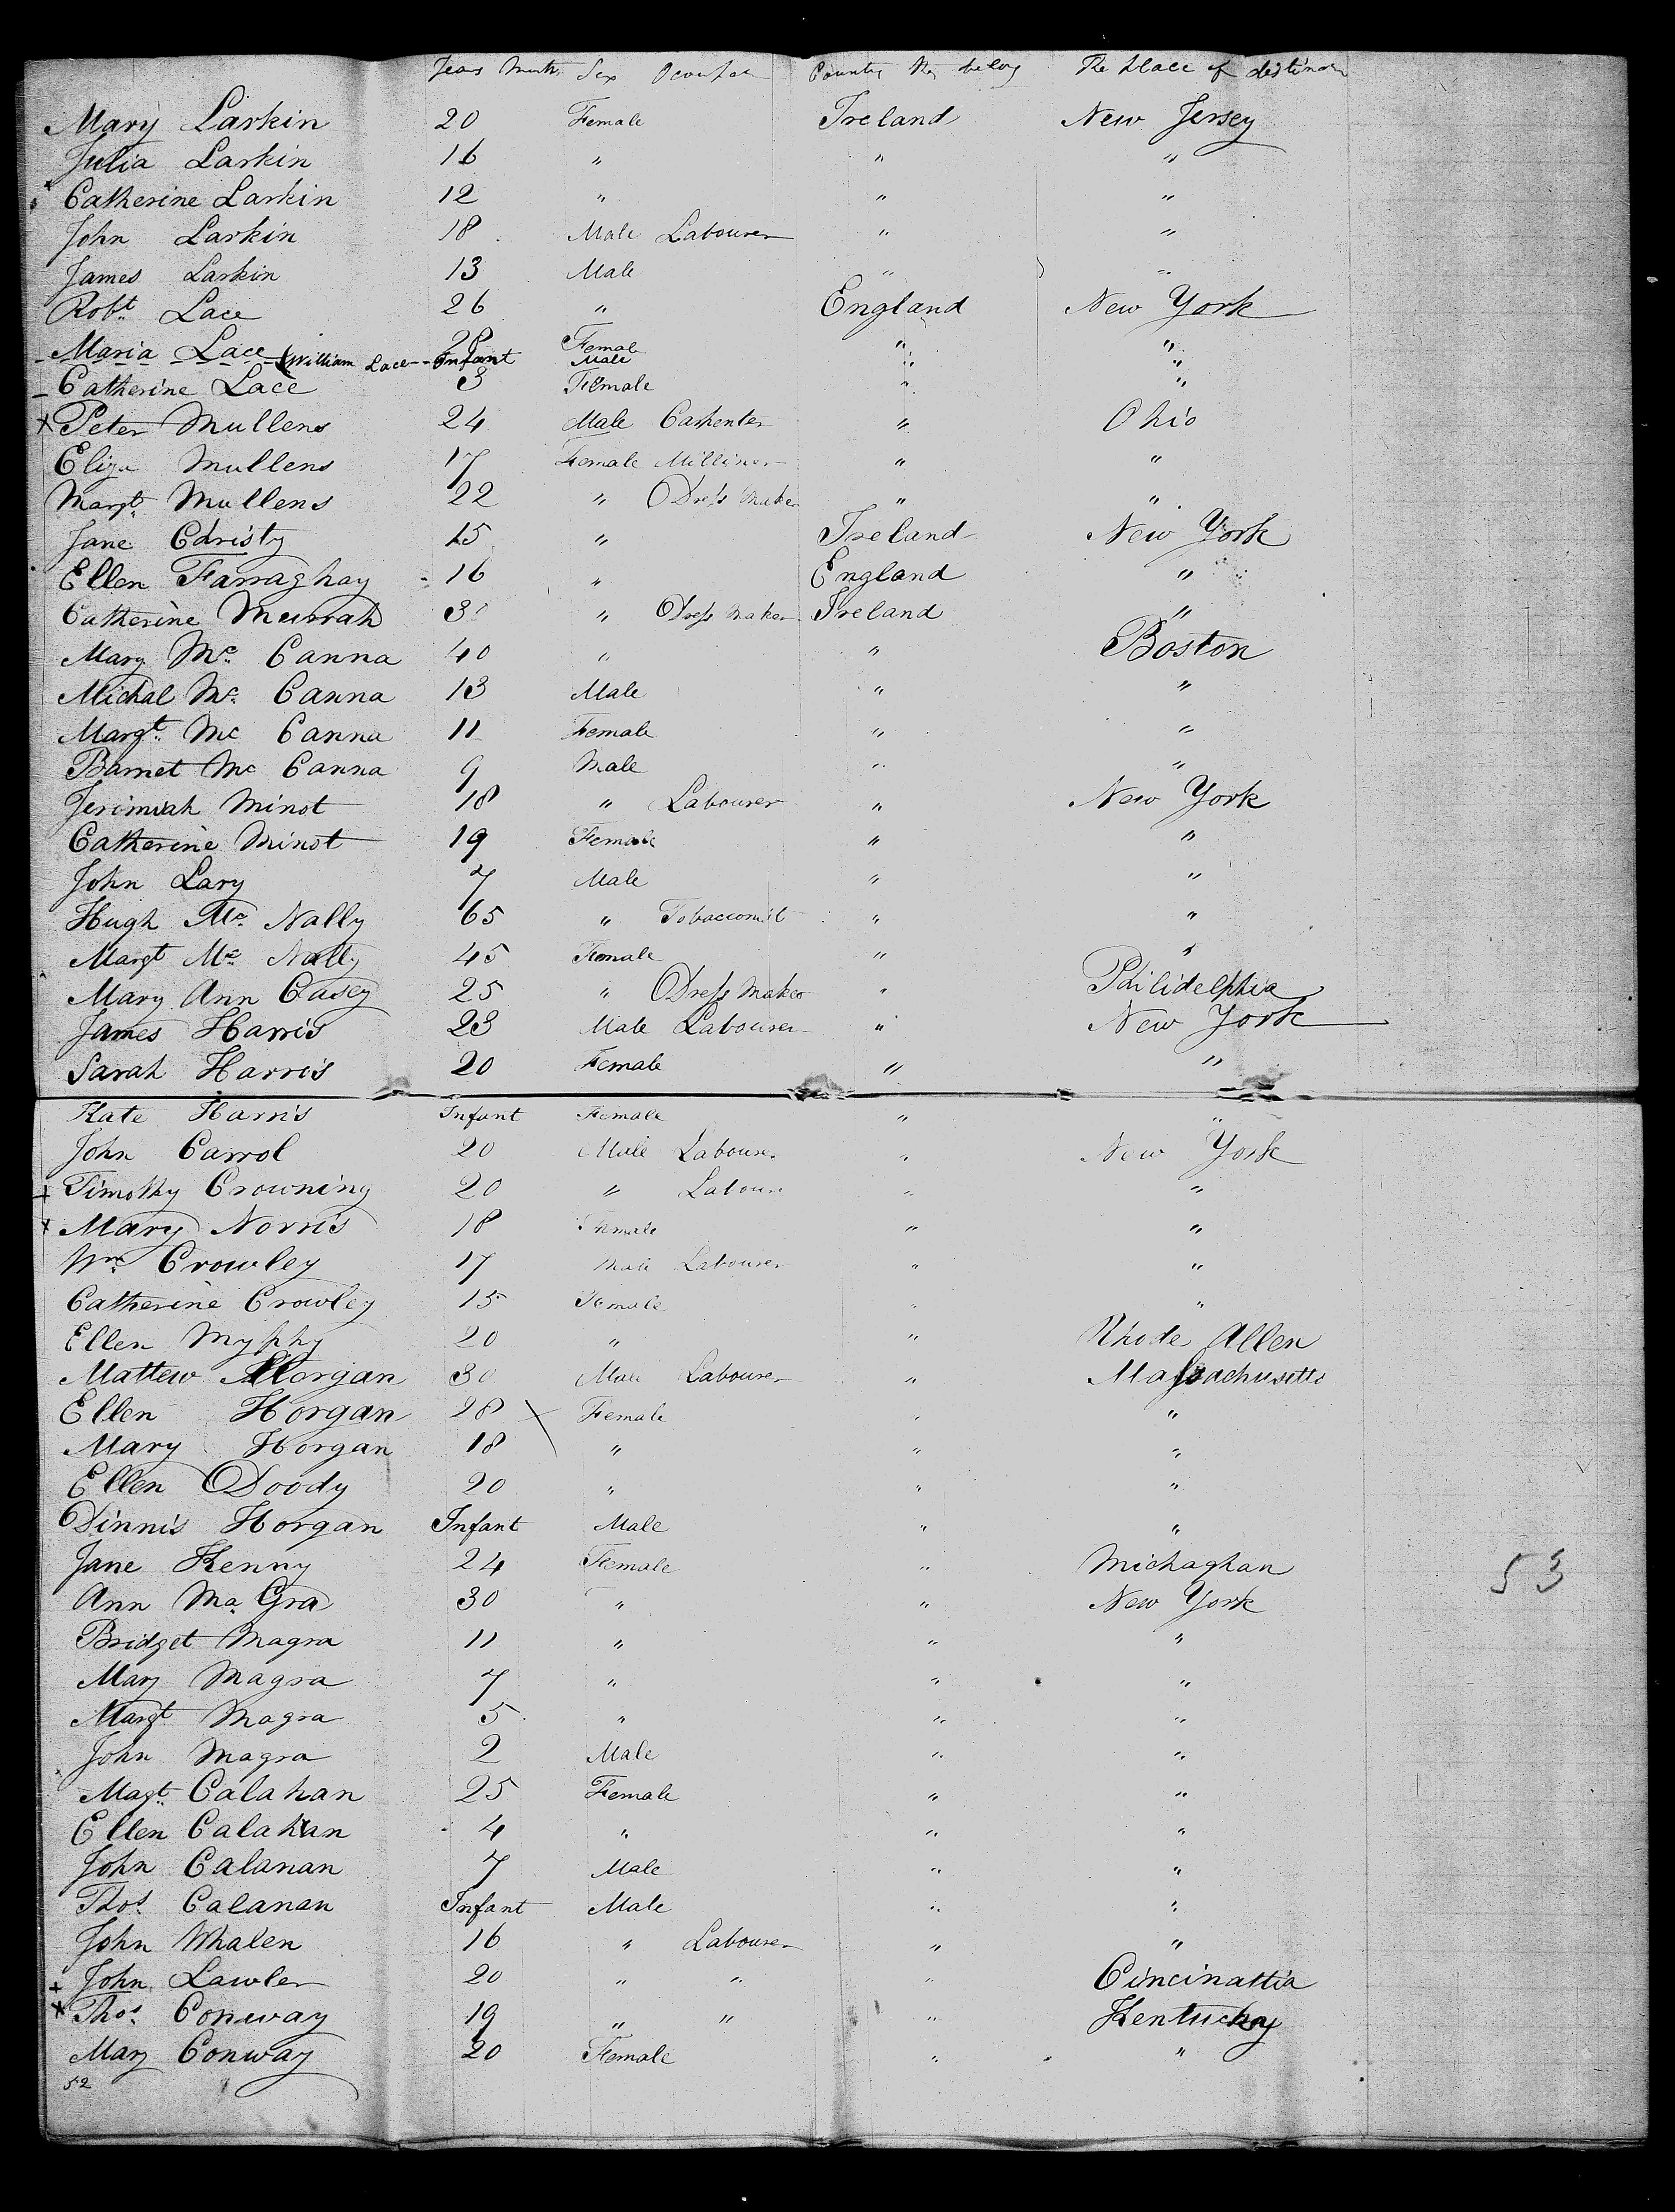 Years Month Sex Ocoupat Country they belong The place of
Mary Larkin 20 Female Ireland New Jersey
Julia Larkin 16 " " "
Catherine Larkin 12 " " "
John Larkin 18 Male Labourer " "
James Larkin 13 Male " "
Robt Lace 26 " England New York
Maria Lace 28 Female " "
William Lace Infant Male " "
Catherine Lace 3 Female " "
x Peter Mullens 24 Male Carpenter " Ohio
Eliza Mullens 17 Female Milliner " "
Margt Mullens 22 " Dress Maker " "
Jane Christy 15 " Ireland New York
Ellen Farraghay 16 " England "
Catherine Murrah 30 " Dress Maker Ireland "
Mary Mc Canna 40 " " Boston
Michal Mc Canna 13 Male " "
Margt Mc Canna 11 Female " "
Barnet Mc Canna 9 Male " "
Jerimiah Minot 18 " Labourer " New York
Catherine Minot 19 Female " "
John Lary 7 Male " "
Hugh Mc Nally 65 " Tobacconist " "
Margt Mc Nally 45 Female " "
Mary Ann Casey 25 " Dress Maker " Philidelphia
James Harris 23 Male Labourer " New York
Sarah Harris 20 Female " "
Kate Harris Infant Female " "
John Carrol 20 Male Labourer " New York
x Timothy Crowning 20 " Labour " "
x Mary Norris 18 Female " "
Wm Crowley 17 Male Labourer " "
Catherine Crowley 15 Female " "
Ellen Myphy 20 " " Rhode Allen
Mattew Horgan 30 Male Labourer " Massachusetts
Ellen Horgan 28 x Female " "
Mary Horgan 18 " " "
Ellen Doody 20 " " "
Dinnis Horgan Infant Male " "
Jane Kenny 24 Female " Michaghan
Ann Ma Gra 30 " " New York
53
Bridget Magra 11 " " "
Mary Magra 7 " " "
Margt Magra 5 " " "
John Magra 2 Male " "
Magt Calahan 25 Female " "
Ellen Calahan 4 " " "
John Calanan 7 Male " "
Thos Calanan Infant Male " "
John Whalen 16 " Labourer " "
x John Lawler 20 " " " Cincinattia
x Thos Conway 19 " " " Kentucky
Mary Conway 20 Female " "
52